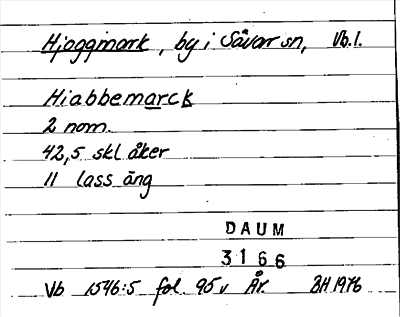 Hjoggmark, by i Sävar sn, Vb.l.
Hiabbemarck
2 nom.
42,5 skl åker
11 lass äng
DAUM
3166
Vb 1546:5 fol. 95 v År. BH 1976